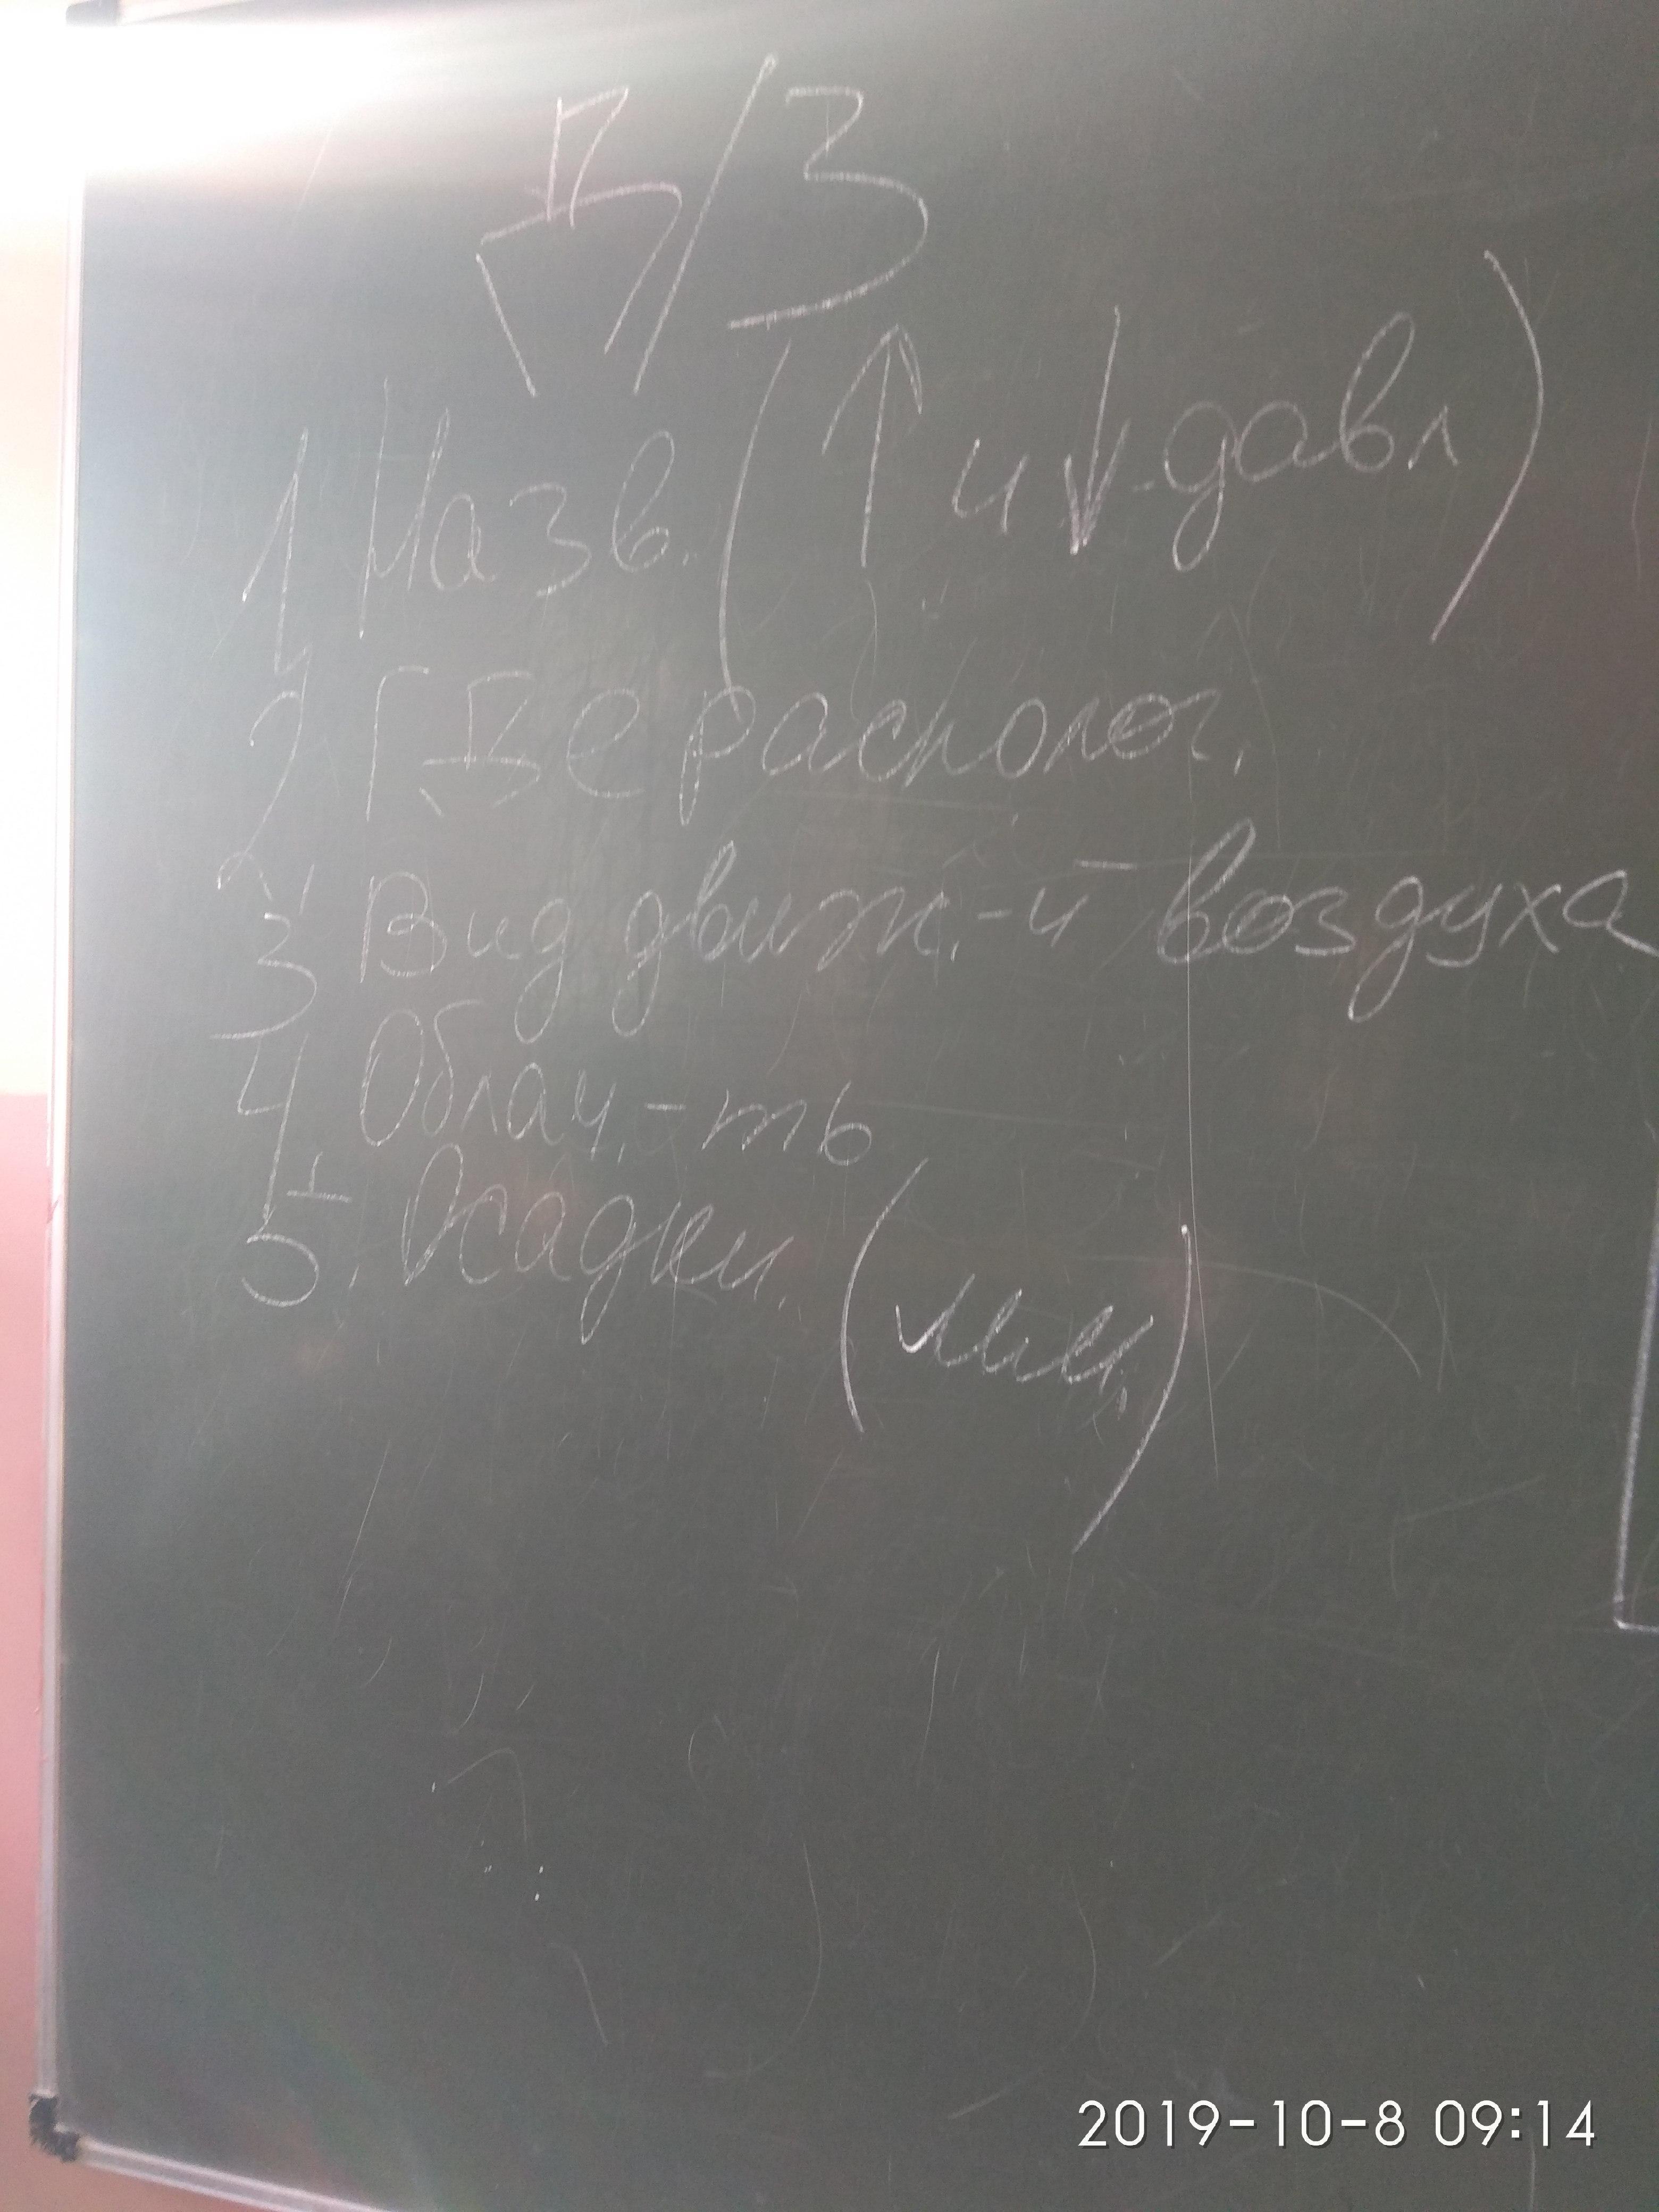 Д/З
1 Назв. (↑ и ↓ давл)
2 ГДе располог.
3 Вид движ.-й воздуха
4 Облач.-ть
5. Осадки. (мм)
2019-10-8 09:14